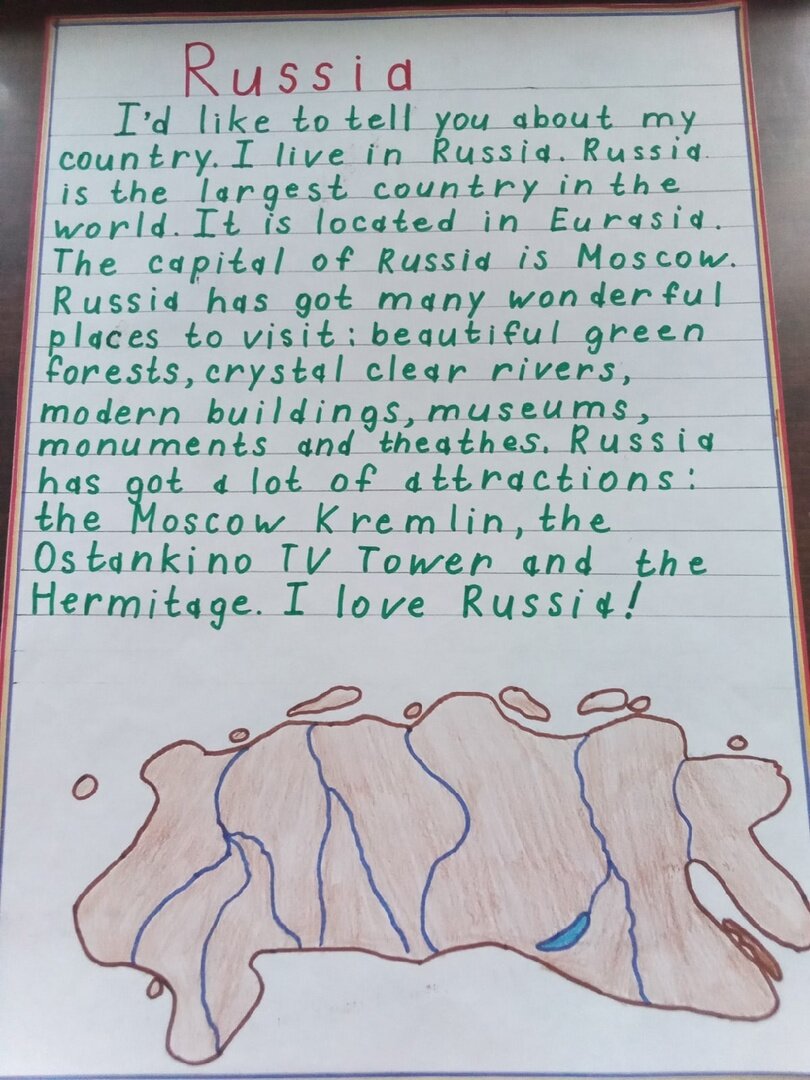 Russia
I'd like to tell you about my
country. I live in Russia. Russia
is the largest country in the
world. It is located in Eurasia.
The capital of Russia is Moscow.
Russia has got many wonderful
places to visit: beautiful green
forests, crystal clear rivers,
modern buildings, museums,
monuments and theathes. Russia
has got a lot of attractions:
the Moscow Kremlin, the
Ostankino TV Tower and the
Hermitage. I love Russia!